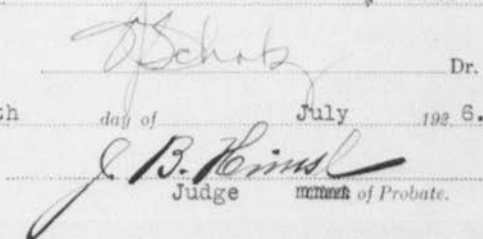 Schatz Dr.
th day of July 192 6.
J. B. Himsl
Judge of Probate.